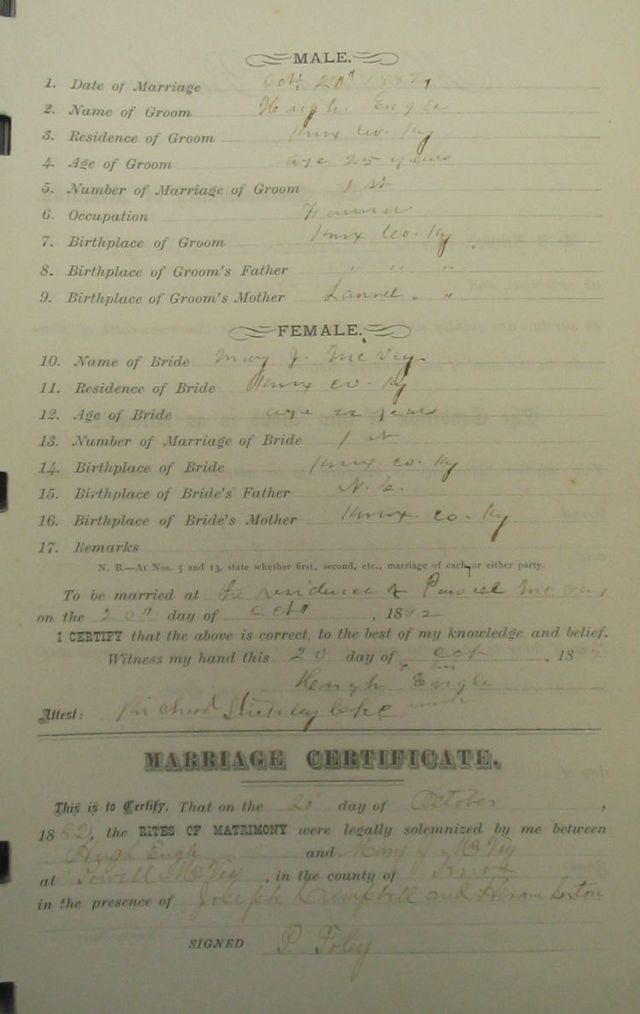 MALE.
1. Date of Marriage Oct. 20th 1882
2. Name of Groom Hugh Engle
3. Residence of Groom Knox Co. Ky
4. Age of Groom age 25 years
5. Number of Marriage of Groom 1 st
6. Occupation Farmer
7. Birthplace of Groom Knox Co. Ky
8. Birthplace of Groom's Father " " "
9. Birthplace of Groom's Mother Laurel " "
FEMALE.
10. Name of Bride Mary J. McVey
11. Residence of Bride Knox co. Ky
12. Age of Bride age 22 years
13. Number of Marriage of Bride 1 st
14. Birthplace of Bride Knox co. Ky
15. Birthplace of Bride's Father N. C.
16. Birthplace of Bride's Mother Knox co. Ky
17. Remarks
N. B.—At Nos. 5 and 13, state whether first, second, etc., marriage of each or either party.
To be married at the residence of
on the 20th day of Oct, 1882
I CERTIFY that the above is correct, to the best of my knowledge and belief.
Witness my hand this 20 day of Oct, 1882
his
Hugh x Engle
mark
Attest:
MARRIAGE CERTIFICATE.
This is to Certify, That on the 20 day of October,
1882, the RITES OF MATRIMONY were legally solemnized by me between
Hugh Engle and Mary J McVey
at McVey, in the county of Knox
in the presence of Joseph Campbell and Hiram Sexton
SIGNED P. Foley